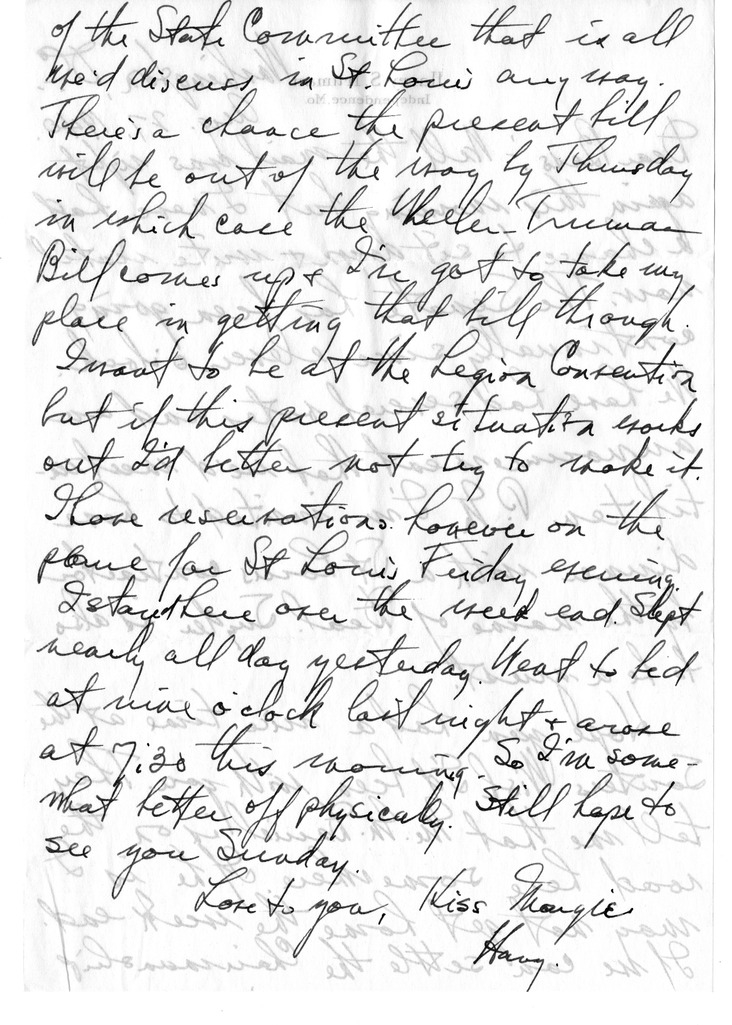 of the State Committee that is all
we'd discuss in St. Louis anyway.
There's a chance the present bill
will be out of the way by Thursday
in which case the Wheeler-Truman
Bill comes up & I've got to take my
place in getting that bill through.
I want to be at the Legion Convention
but if this present situation works
out I'd better not try to make it.
I have reservations however on the
plane for St Louis Friday evening.
I stayed here over the week end. Slept
nearly all day yesterday. Went to bed
at nine o'clock last night & arose
at 7:30 this morning. So I'm some-
what better off physically. Still hope to
see you Sunday.
Love to you, Kiss Margie
Harry.